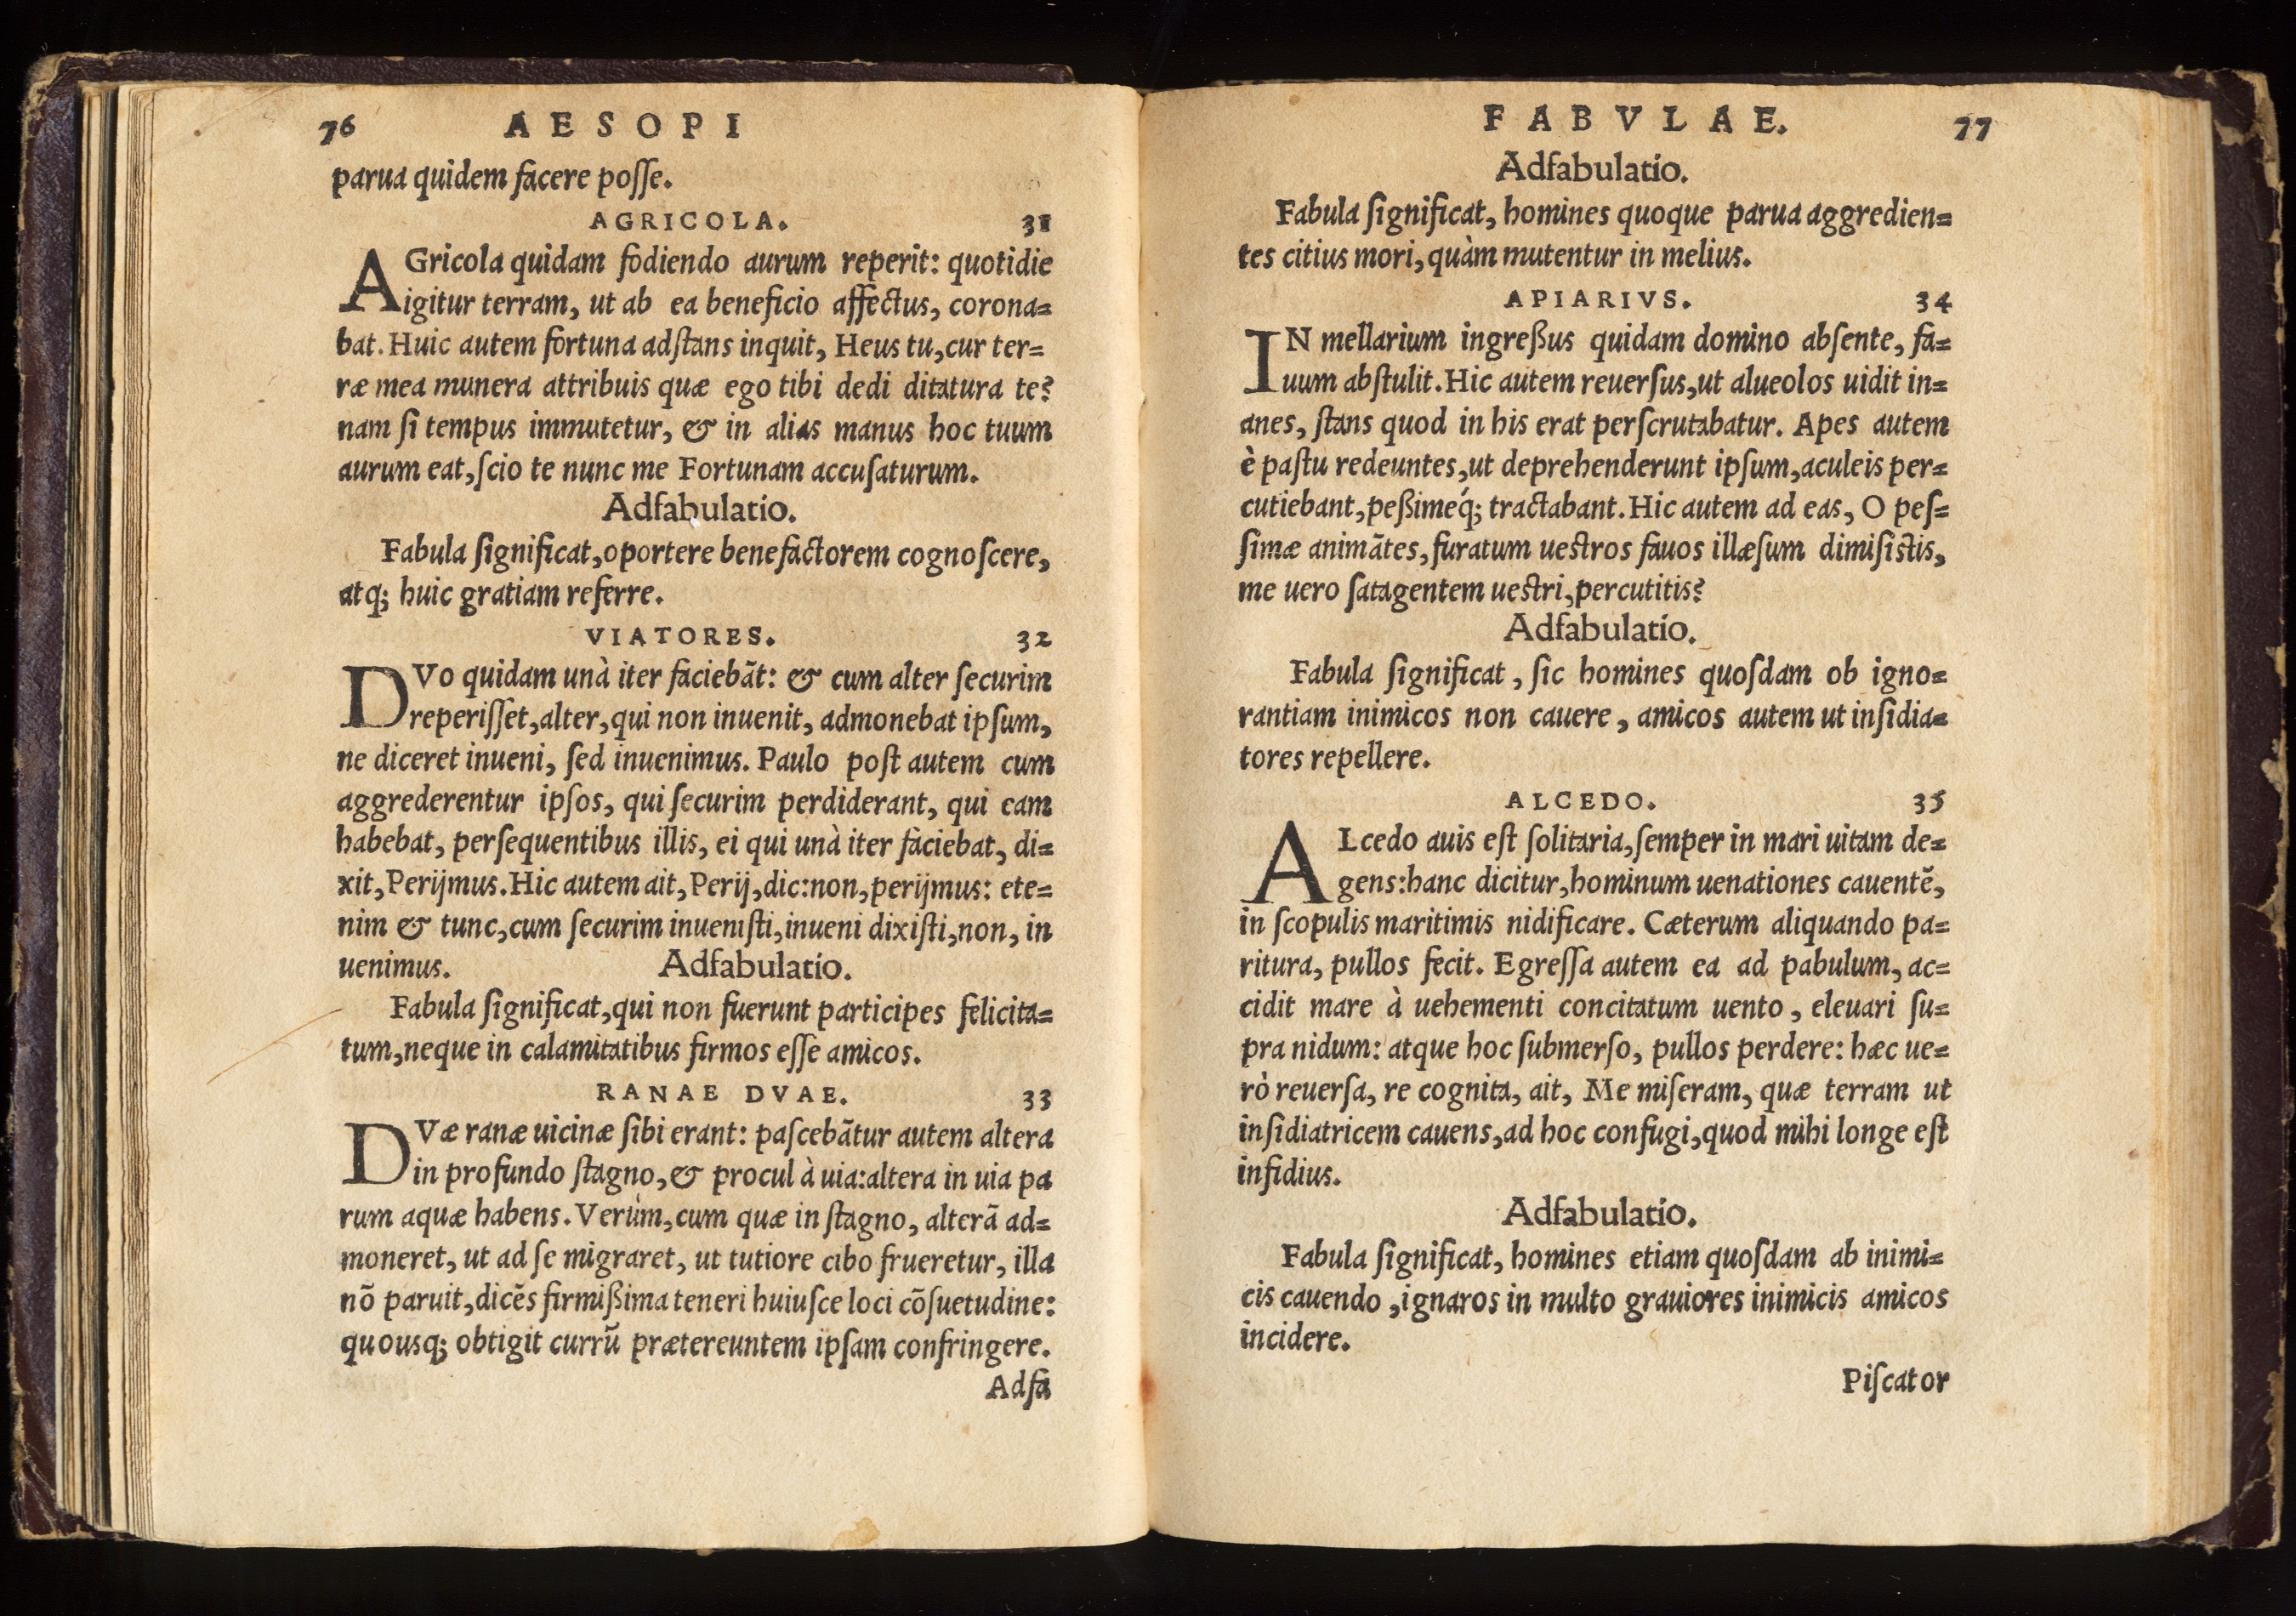 76 AESOPI
parua quidem facere poſſe.
AGRICOLA. 31
AGricola quidam fodiendo aurum reperit: quotidie
igitur terram, ut ab ea beneficio affectus, corona=
bat. Huic autem fortuna adſtans inquit, Heus tu, cur ter=
ræ mea munera attribuis quæ ego tibi dedi ditatura te?
nam ſi tempus immutetur, & in alias manus hoc tuum
aurum eat, ſcio te nunc me Fortunam accuſaturum.
Adfabulatio.
Fabula ſignificat, oportere benefactorem cognoſcere,
atq; huic gratiam referre.
VIATORES. 32
DVo quidam unà iter faciebãt: & cum alter ſecurim
reperiſſet, alter, qui non inuenit, admonebat ipſum,
ne diceret inueni, ſed inuenimus. Paulo poſt autem cum
aggrederentur ipſos, qui ſecurim perdiderant, qui eam
habebat, perſequentibus illis, ei qui unà iter faciebat, di=
xit, Perijmus. Hic autem ait, Perij, dic: non, perijmus: ete=
nim & tunc, cum ſecurim inueniſti, inueni dixiſti, non, in
uenimus. Adfabulatio.
Fabula ſignificat, qui non fuerunt participes felicita=
tum, neque in calamitatibus firmos eſſe amicos.
RANAE DVAE. 33
DVæ ranæ uicinæ ſibi erant: paſcebãtur autem altera
in profundo ſtagno, & procul à uia: altera in uia pa
rum aquæ habens. Verùm, cum quæ in ſtagno, alterã ad=
moneret, ut ad ſe migraret, ut tutiore cibo frueretur, illa
nõ paruit, dicẽs firmißima teneri huiuſce loci cõſuetudine:
quouſq; obtigit currũ prætereuntem ipſam confringere.
Adfa
FABVLAE. 77
Adfabulatio.
Fabula ſignificat, homines quoque parua aggredien=
tes citius mori, quàm mutentur in melius.
APIARIVS. 34
IN mellarium ingreßus quidam domino abſente, fa=
uum abſtulit. Hic autem reuerſus, ut alueolos uidit in=
anes, ſtans quod in his erat perſcrutabatur. Apes autem
è paſtu redeuntes, ut deprehenderunt ipſum, aculeis per=
cutiebant, peßimeq́; tractabant. Hic autem ad eas, O peſ=
ſimæ animãtes, furatum ueſtros fauos illæſum dimiſiſtis,
me uero ſatagentem ueſtri, percutitis?
Adfabulatio.
Fabula ſignificat, ſic homines quoſdam ob igno=
rantiam inimicos non cauere, amicos autem ut inſidia=
tores repellere.
ALCEDO. 35
ALcedo auis eſt ſolitaria, ſemper in mari uitam de=
gens: hanc dicitur, hominum uenationes cauentẽ,
in ſcopulis maritimis nidificare. Cæterum aliquando pa=
ritura, pullos fecit. Egreſſa autem ea ad pabulum, ac=
cidit mare à uehementi concitatum uento, eleuari ſu=
pra nidum: atque hoc ſubmerſo, pullos perdere: hæc ue=
rò reuerſa, re cognita, ait, Me miſeram, quæ terram ut
inſidiatricem cauens, ad hoc confugi, quod mihi longe eſt
infidius.
Adfabulatio.
Fabula ſignificat, homines etiam quoſdam ab inimi=
cis cauendo, ignaros in multo grauiores inimicis amicos
incidere.
Piſcator